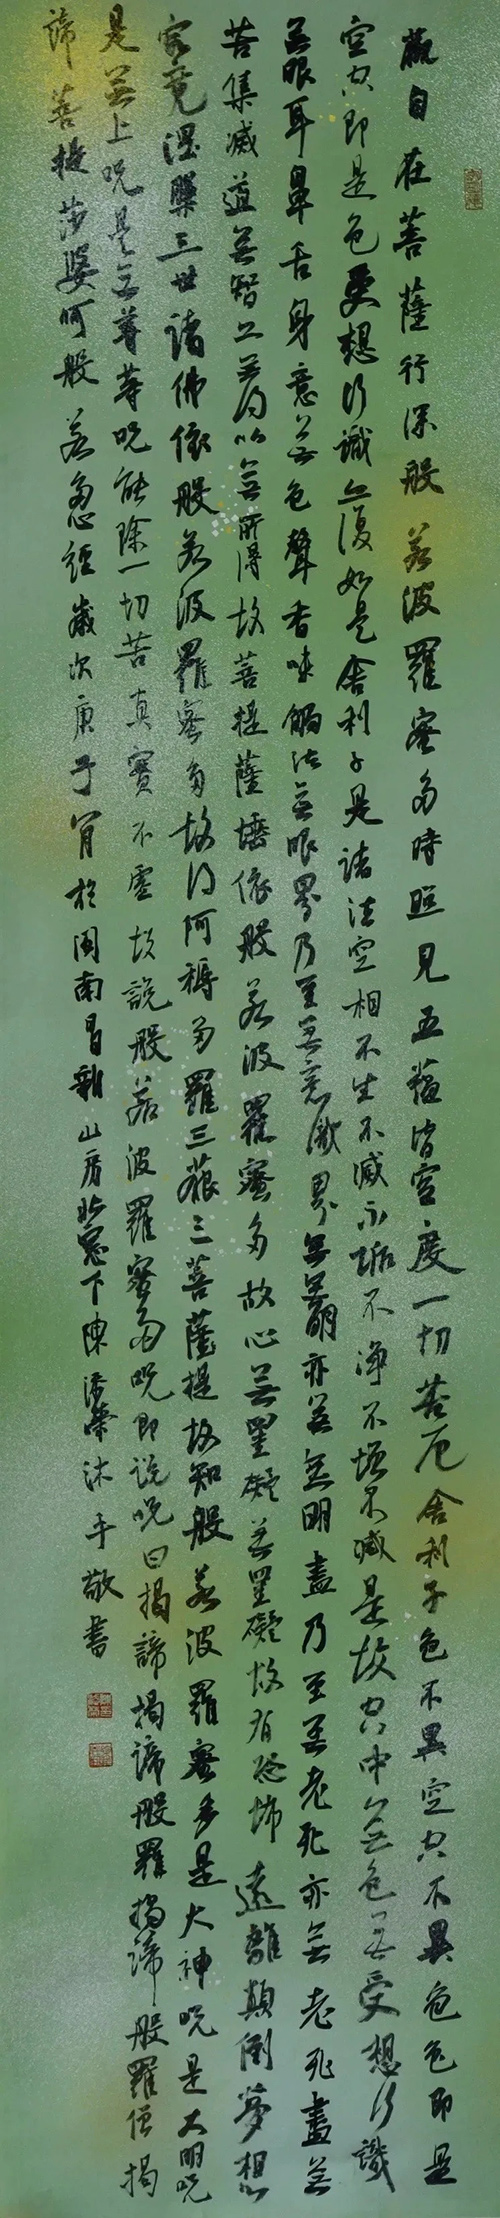 觀自在菩薩行深般若波羅蜜多時照見五蘊皆空度一切苦厄舍利子色不異空空不異色色即是
空空即是色受想行識亦復如是舍利子是諸法空相不生不滅不垢不淨不增不減是故空中無色無受想行識
無眼耳鼻舌身意無色聲香味觸法無眼界乃至無意識界無無明亦無無明盡乃至無老死亦無老死盡無
苦集滅道無智亦無得以無所得故菩提薩埵依般若波羅蜜多故心無罣礙無罣礙故有恐怖遠離顛倒夢想
究竟涅槃三世諸佛依般若波羅蜜多故得阿耨多羅三藐三菩薩提故知般若波羅蜜多是大神咒是大明咒
是無上咒是無等等咒能除一切苦真實不虛故說般若波羅蜜多咒即說咒曰揭諦揭諦般羅揭諦般羅僧揭
諦菩提莎婆呵般若心經歲次庚子於閩南新山房北窗下陳榮沐手敬書